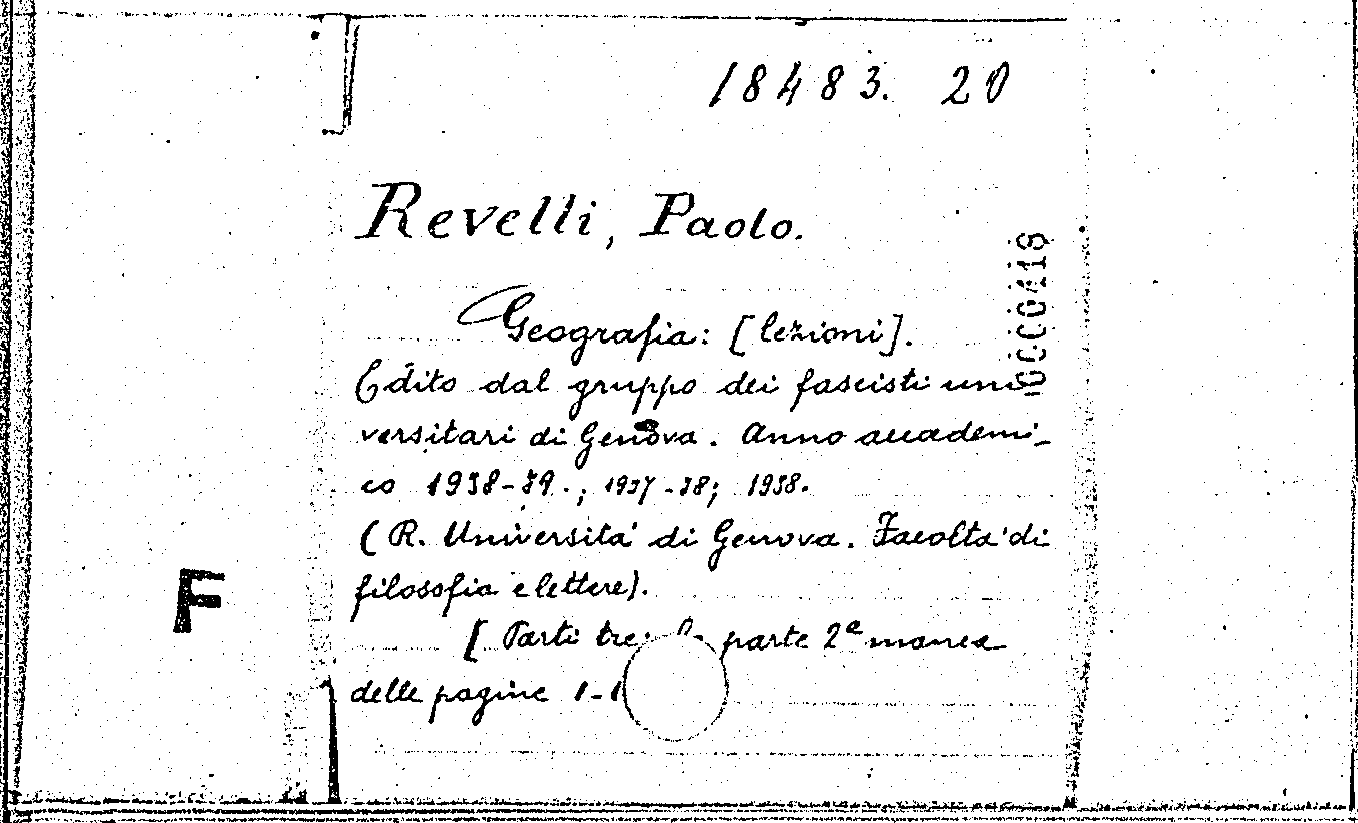 18483. 20
Revelli, Paolo.
00000418
Geografia: [lezioni].
Edito dal gruppo dei fascisti uni
versitari di Genova. Anno accademi-
co 1938-39.; 1937-38; 1938.
(R. Università di Genova. Facoltà di
filosofia e lettere).
F
[Parti tre: parte 2ª manca
delle pagine 1-